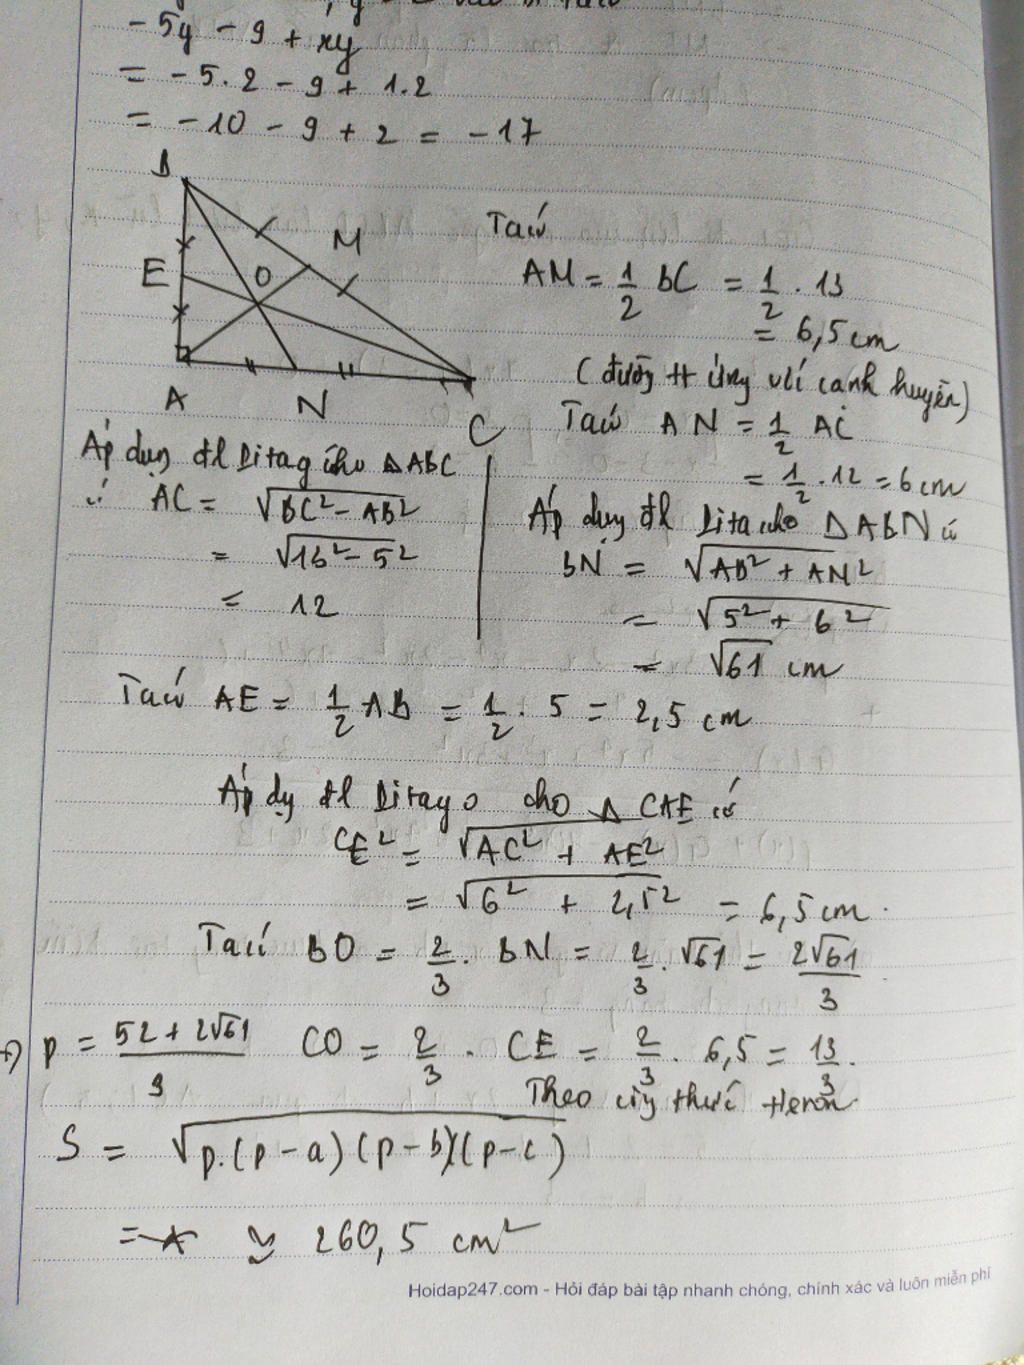 - 5y - 9 + xy
= - 5.2 - 9 + 1.2
= -10 - 9 + 2 = -17
B
M
E
O
A
N
C
Ta có
AM = 1/2 BC = 1/2 . 13
= 6,5 cm
(đường tt ứng với cạnh huyền)
Ta có AN = 1/2 AC
= 1/2 . 12 = 6 cm
Áp dụng đl Pitago cho △ABC
có AC = √BC² - AB²
= √13² - 5²
= 12
Áp dụng đl Pita cho △ABN có
BN = √AB² + AN²
= √5² + 6²
= √61 cm
Ta có AE = 1/2 AB = 1/2 . 5 = 2,5 cm
Áp dụ đl Pitago cho △ CAE có
CE² = √AC² + AE²
= √6² + 2,5² = 6,5 cm.
Ta có BO = 2/3 . BN = 2/3 . √61 = 2√61/3
p = 52 + 2√61/9
CO = 2/3 . CE = 2/3 . 6,5 = 13/3.
Theo công thức Heron
S = √p.(p-a)(p-b)(p-c)
= ≈ 260,5 cm²
Hoidap247.com - Hỏi đáp bài tập nhanh chóng, chính xác và luôn miễn phí